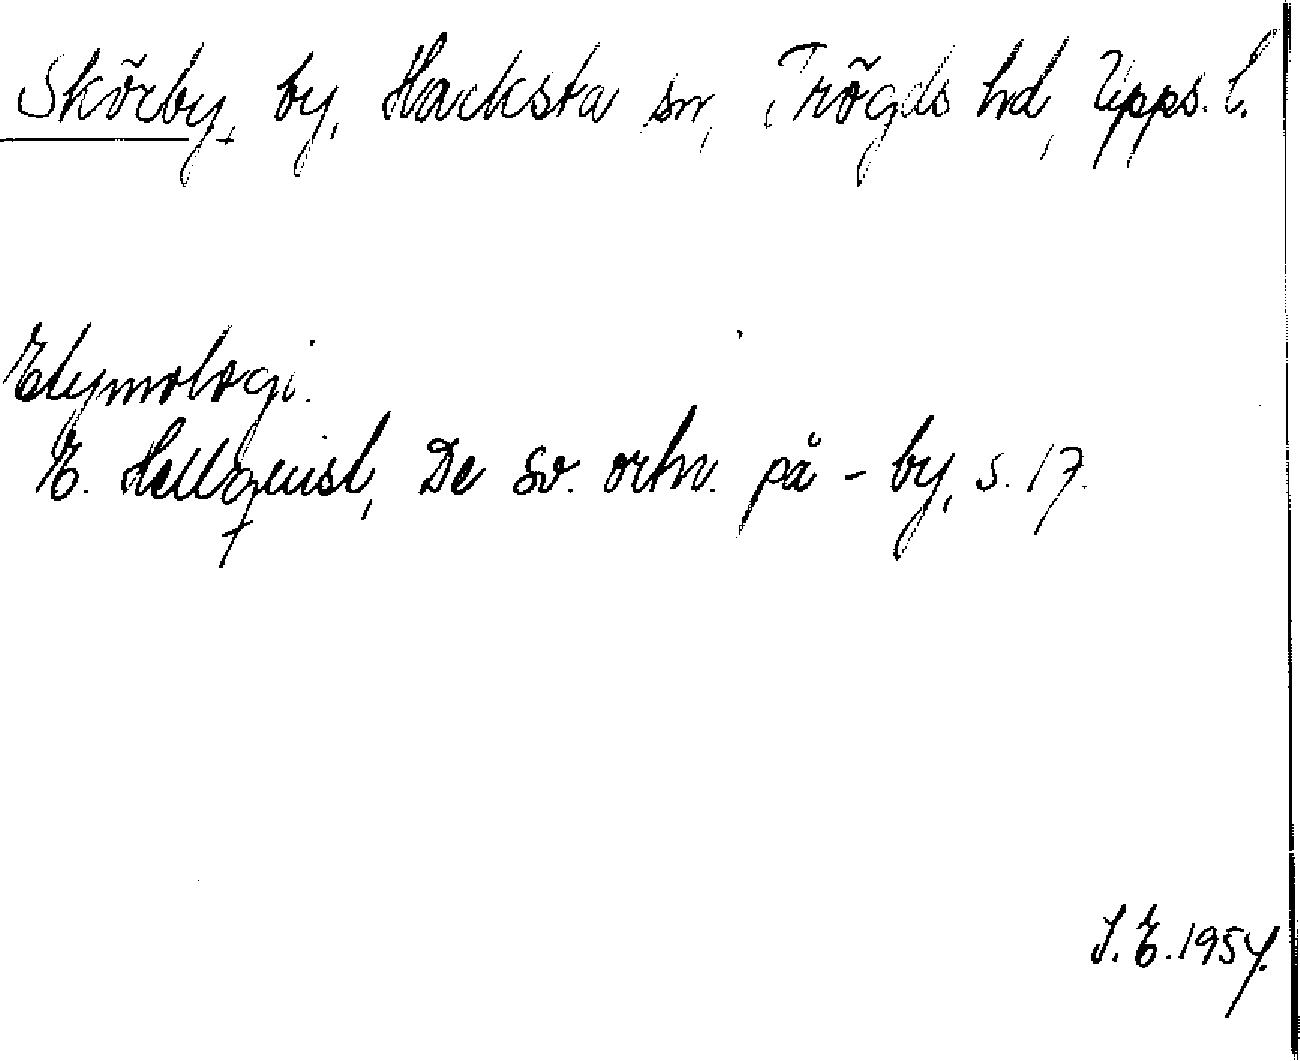 Skörby, by, Hacksta sn, Trögds hd, Upps. l.
Etymologi.
E. Hellquist, De sv. ortn. på -by, s. 17.
S. E. 1954.